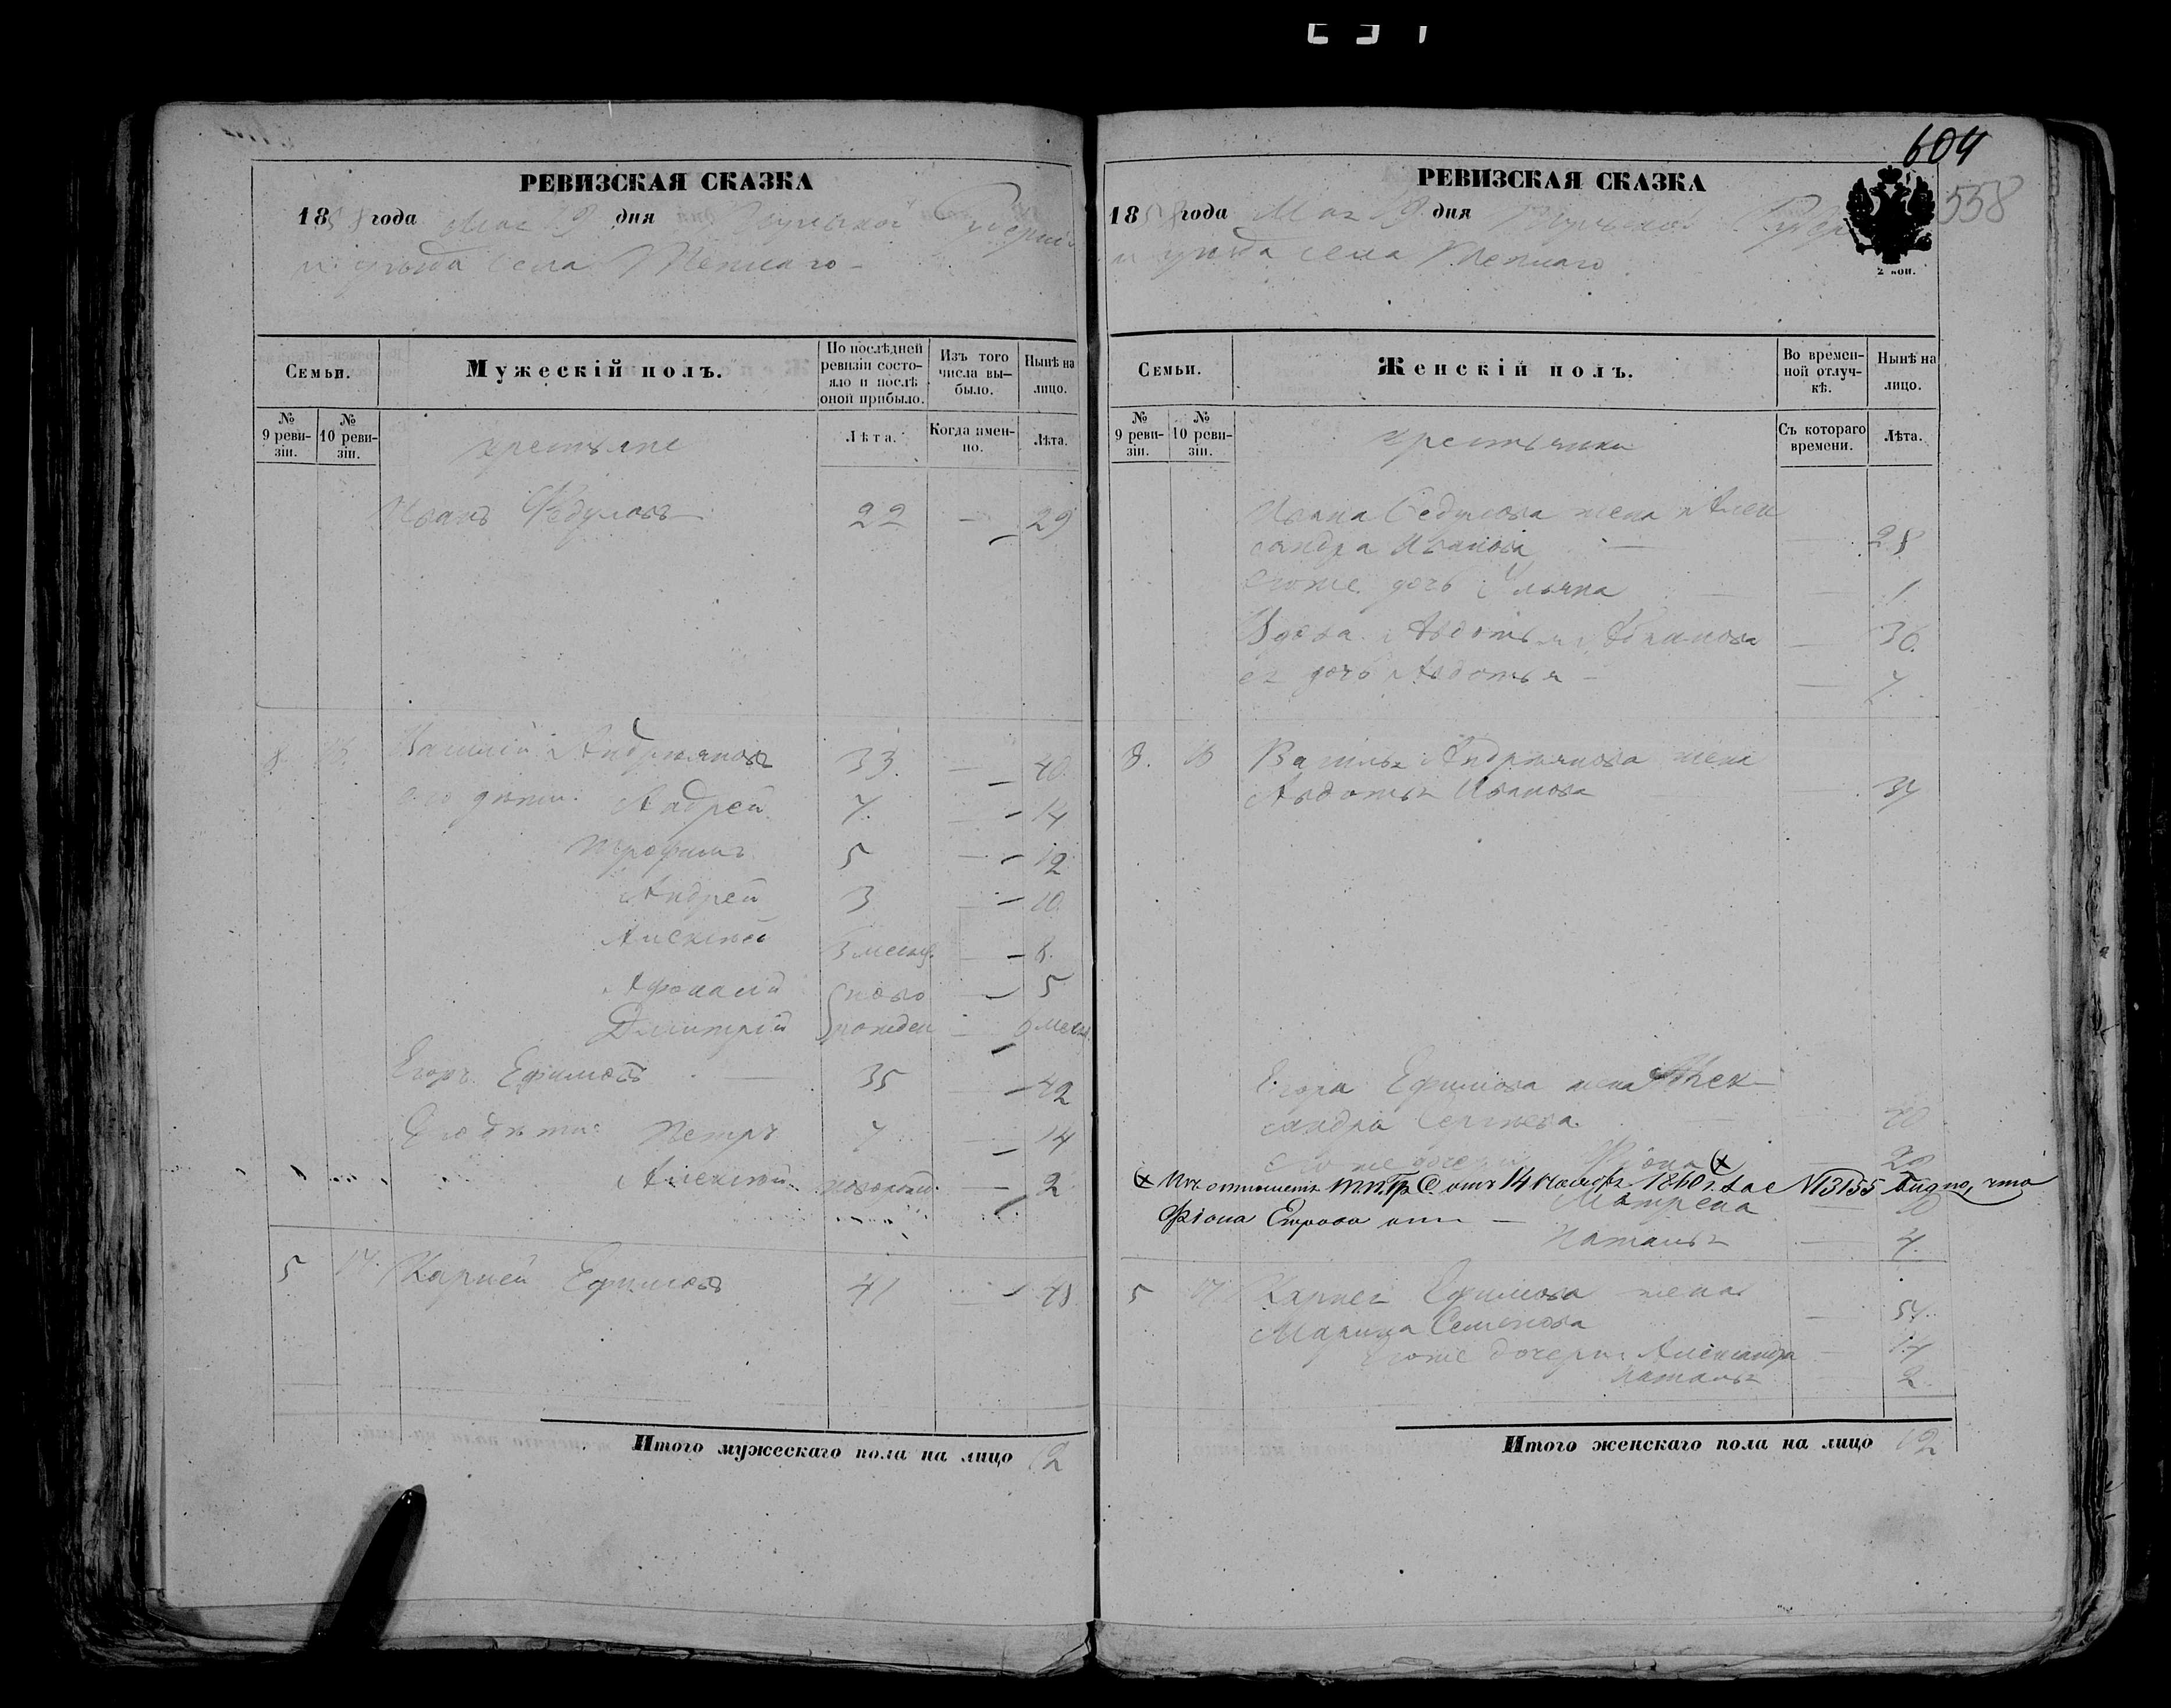 604
558
РЕВИЗСКАЯ СКАЗКА
1858 года Мая 19 дня Тульской Губерніи
и уѣзда села Теплаго
Семьи.
Мужескій полъ.
По послѣдней ревизіи состояло и послѣ оной прибыло.
Изъ того числа выбыло.
Нынѣ на лицо.
№ 9 ревизіи.
№ 10 ревизіи.
крестьяне
Лѣта.
Когда именно.
Лѣта.
Иванъ Федуловъ 22 — 29
8. Василій Андреяновъ 33. — 40.
его дѣти: Андрей 7. — 14
Трофимъ 5 — 12
Андрей 3 — 10.
Алексѣй — 8.
Афонасій ново — 5
Дмитрій рожден —
Егоръ Ефимовъ — 35 — 42
Его дѣти: Петръ 7 — 14
Алексѣй новорожд. — 2
5 17. Карпей Ефимовъ 41 — 48
Итого мужескаго пола на лицо 12
РЕВИЗСКАЯ СКАЗКА
1858 года Мая 19 дня Тульской Губер
и уѣзда села Теплаго.
2 коп.
Семьи.
Женскій полъ.
Во временной отлучкѣ.
Нынѣ на лицо.
№ 9 ревизіи.
№ 10 ревизіи.
крестьянки
Съ котораго времени.
Лѣта.
Ивана Федулова жена Алек
сандра Иванова — — 28
Его же дочь Ульяна — — 1.
Вдова Авдотья — 36.
ея дочь Авдотья — — 7.
8. Василья Андреянова жена
Авдотья Иванова 37
Егора Ефимова жена Алек
сандра Сергѣева.
Его же дочери Фіона
Изъ отношенія отъ 14 1860 г. за № 3155 видно, что
Матрена —
Фіона Егорова —
Наталья — 4.
5 17 Карпея Ефимова жена
Марина Семенова — 54.
Его же дочери Александра — 14
Наталья — 2.
Итого женскаго пола на лицо 12